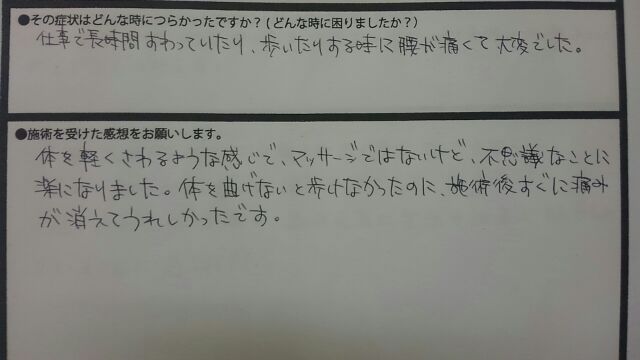 ●その症状はどんな時につらかったですか？(どんな時に困りましたか？)
仕事で長時間すわっていたり、歩いたりする時に腰が痛くて大変でした。
●施術を受けた感想をお願いします。
体を軽くさわるような感じで、マッサージではないけど、不思議なことに
楽になりました。体を曲げないと歩けなかったのに、施術後すぐに痛み
が消えてうれしかったです。